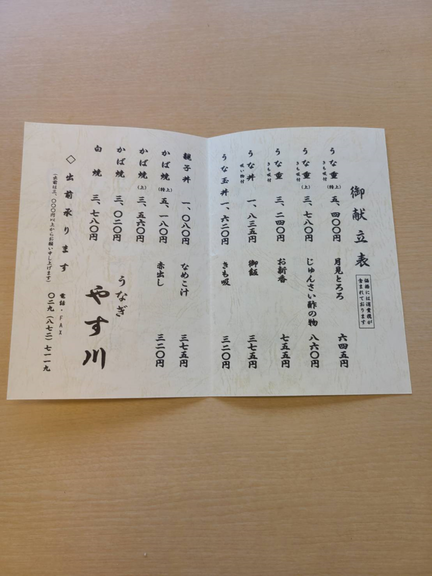 御献立表
価格には消費税が
含まれております
うな重(特上) 五、四〇〇円
きも吸付
うな重(上) 三、七八〇円
きも吸付
うな重 三、二四〇円
きも吸付
うな丼 一、八三五円
吸い物付
うな玉丼 一、六二〇円
親子丼 一、〇八〇円
かば焼(特上) 五、一八〇円
かば焼(上) 三、五六〇円
かば焼 三、〇二〇円
白焼 三、七八〇円
月見とろろ 六四五円
じゅんさい酢の物 八六〇円
お新香 七五五円
御飯 三七五円
きも吸 三二〇円
なめこ汁 三七五円
赤出し 三二〇円
うなぎ
やす川
◇出前承ります
電話・FAX
〇二九(八七二)七一一九